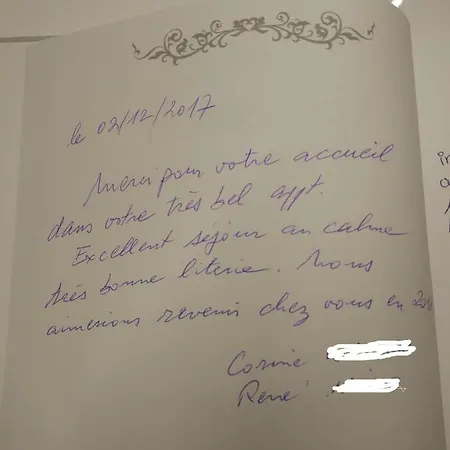 le 02/12/2017
Merci pour votre accueil
dans votre très bel appt.
Excellent séjour au calme
très bonne literie. Nous
aimerions revenir chez vous en
Corine
René